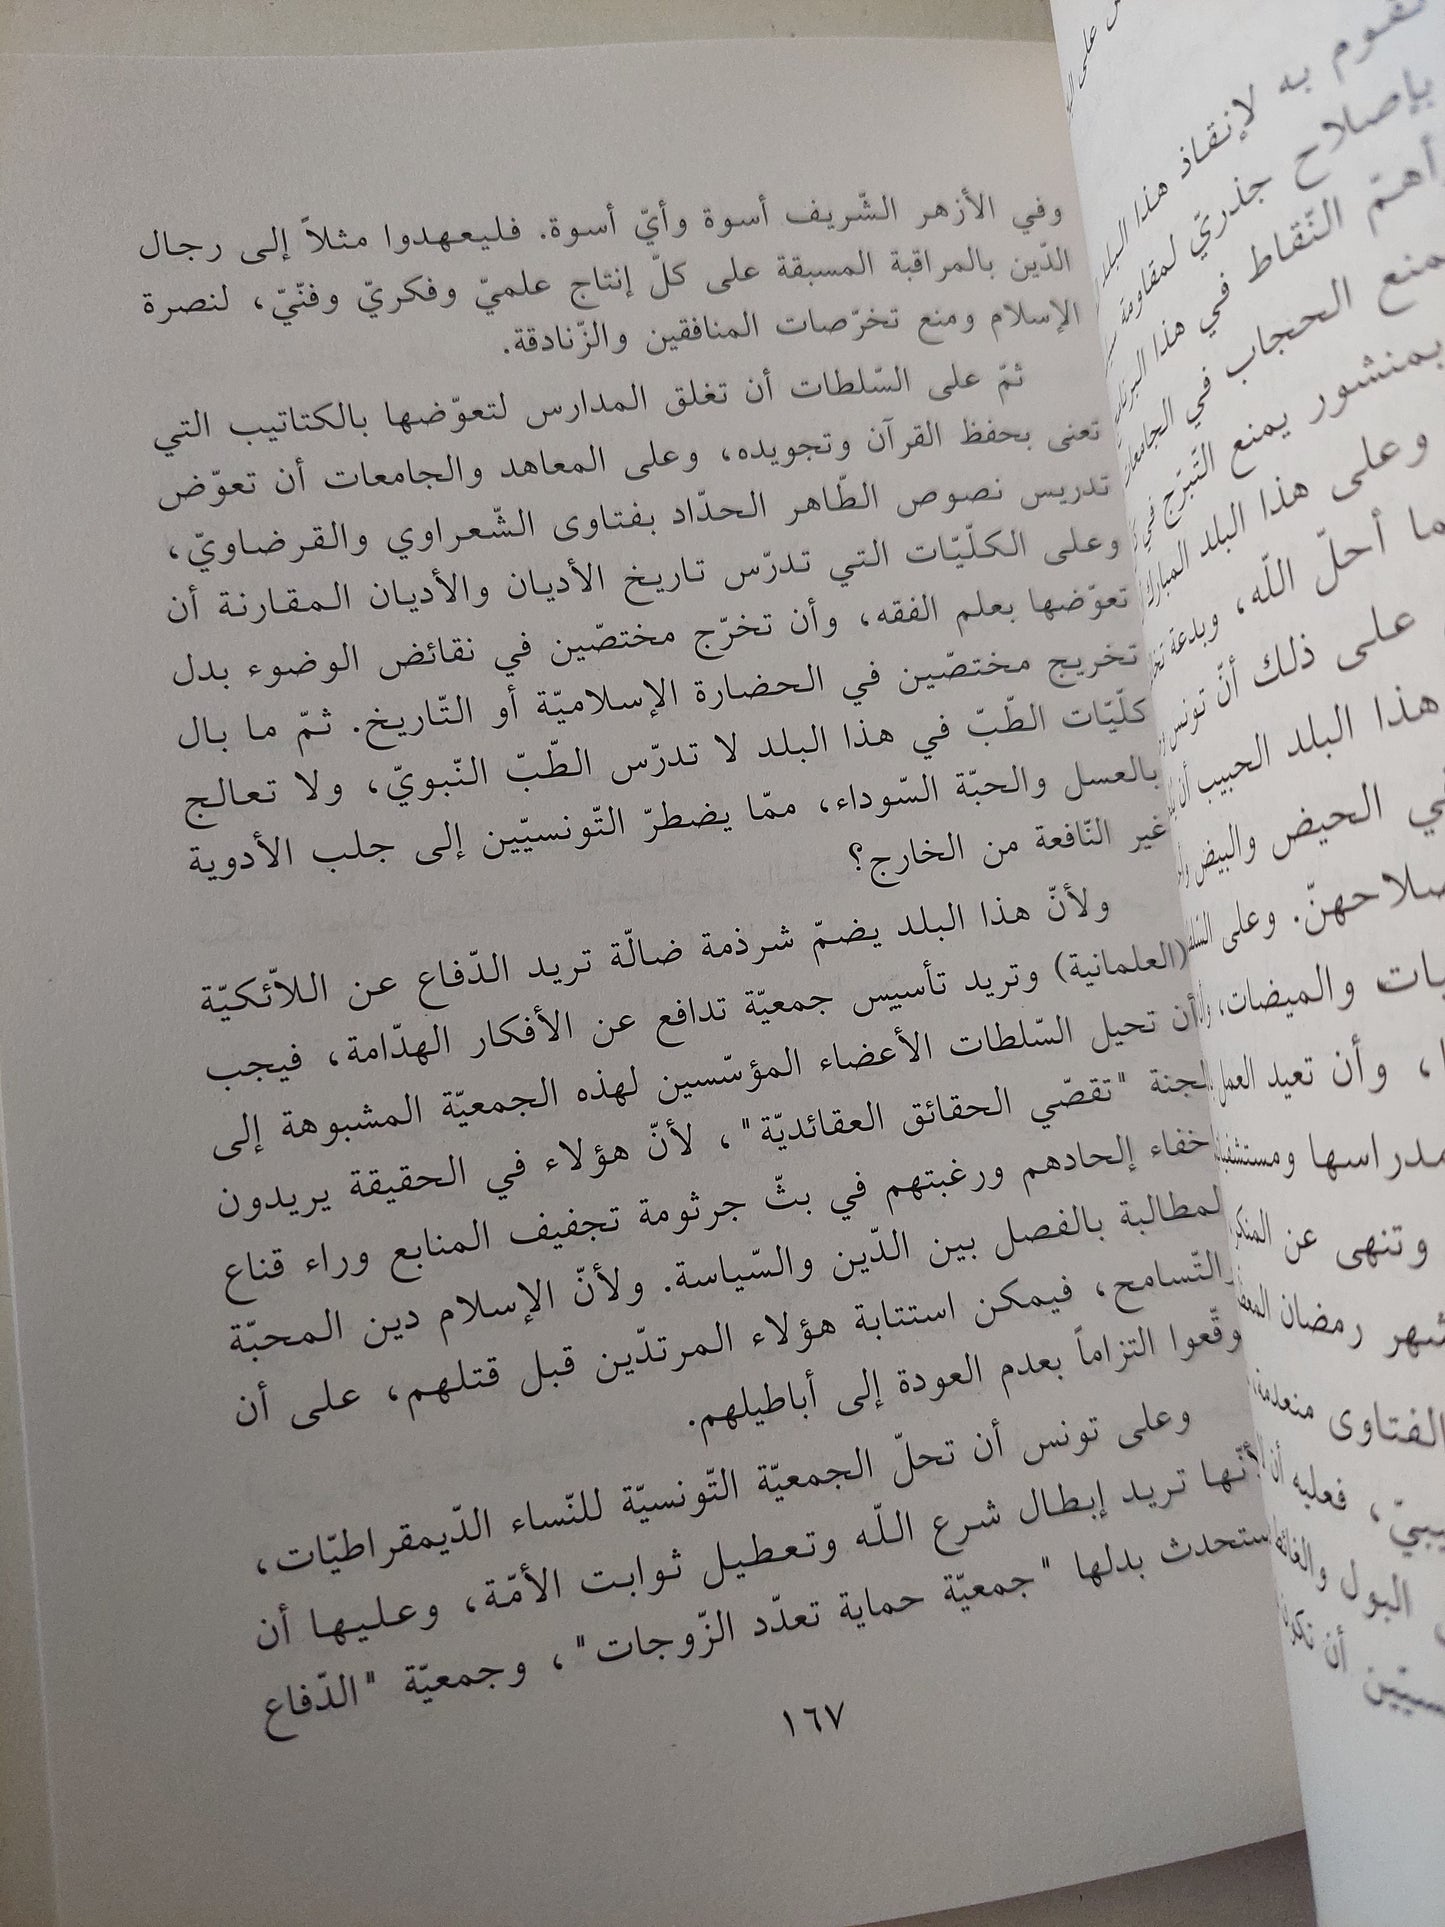 وفي الأزهر الشّريف أسوة وأيّ أسوة. فليعهدوا مثلاً إلى رجال
الدّين بالمراقبة المسبقة على كلّ إنتاج علميّ وفكريّ وفنّيّ، لنصرة
الإسلام ومنع تخرّصات المنافقين والزّنادقة.
ثمّ على السّلطات أن تغلق المدارس لتعوّضها بالكتاتيب التي
تعنى بحفظ القرآن وتجويده، وعلى المعاهد والجامعات أن تعوّض
تدريس نصوص الطّاهر الحدّاد بفتاوى الشّعراوي والقرضاويّ،
وعلى الكلّيّات التي تدرّس تاريخ الأديان والأديان المقارنة أن
تعوّضها بعلم الفقه، وأن تخرّج مختصّين في نقائض الوضوء بدل
تخريج مختصّين في الحضارة الإسلاميّة أو التّاريخ. ثمّ ما بال
كلّيّات الطّبّ في هذا البلد لا تدرّس الطّبّ النّبويّ، ولا تعالج
بالعسل والحبّة السّوداء، ممّا يضطرّ التّونسيّين إلى جلب الأدوية
غير النّافعة من الخارج؟
ولأنّ هذا البلد يضمّ شرذمة ضالّة تريد الدّفاع عن اللاّئكيّة
(العلمانية) وتريد تأسيس جمعيّة تدافع عن الأفكار الهدّامة، فيجب
أن تحيل السّلطات الأعضاء المؤسّسين لهذه الجمعيّة المشبوهة إلى
لجنة "تقصّي الحقائق العقائديّة"، لأنّ هؤلاء في الحقيقة يريدون
إخفاء إلحادهم ورغبتهم في بثّ جرثومة تجفيف المنابع وراء قناع
المطالبة بالفصل بين الدّين والسّياسة. ولأنّ الإسلام دين المحبّة
والتّسامح، فيمكن استتابة هؤلاء المرتدّين قبل قتلهم، على أن
يوقّعوا التزاماً بعدم العودة إلى أباطيلهم.
وعلى تونس أن تحلّ الجمعيّة التّونسيّة للنّساء الدّيمقراطيّات،
لأنّها تريد إبطال شرع اللّه وتعطيل ثوابت الأمّة، وعليها أن
تستحدث بدلها "جمعيّة حماية تعدّد الزّوجات"، وجمعيّة "الدّفاع
١٦٧
به لإنقاذ هذا البلد
بإصلاح جذريّ لمقاومة
النّقاط في هذا
الحجاب في
بمنشور يمنع التّبرّج في
وعلى هذا البلد المبارك
ما أحلّ اللّه، وبدعة
على ذلك أنّ تونس
هذا البلد الحبيب أن
الحيض والبيض
وعلى
والميضات،
وأن تعيد العمل
وتنهى عن المنكر
رمضان
الفتاوى منعدمة
فعليه أن
البول
أن